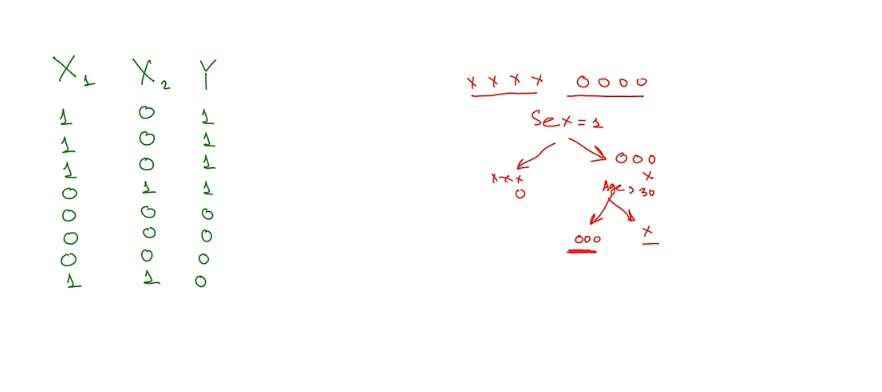 X₁ X₂ Y
1 0 1
1 0 1
1 0 1
0 1 1
0 0 0
0 0 0
0 0 0
1 1 0
x x x x 0 0 0 0
Sex = 1
x x x
0
0 0 0
x
Age > 30
000
x